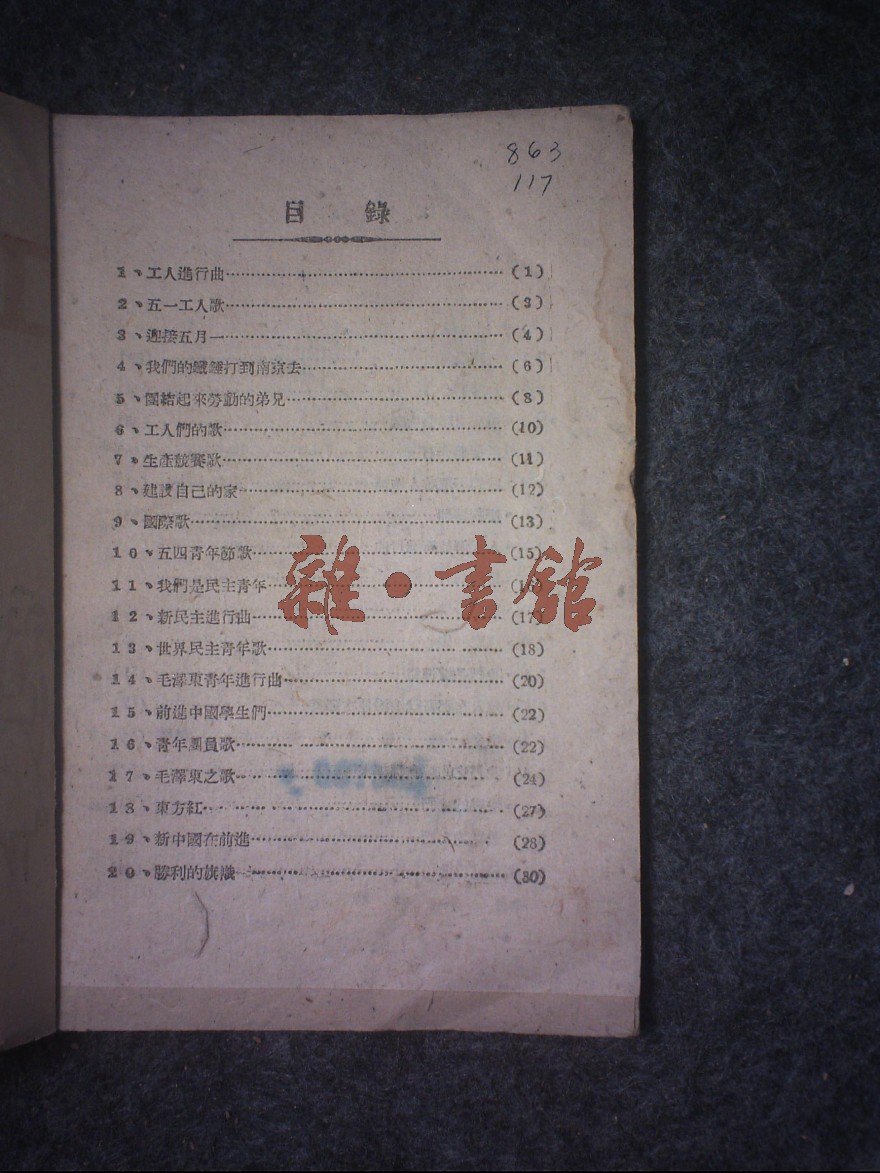 863
117
目 錄
1、工人進行曲………(1)
2、五一工人歌………(3)
3、迎接五月一………(4)
4、我們的鐵錘打到南京去………(6)
5、團結起來勞動的弟兄………(8)
6、工人們的歌………(10)
7、生產競賽歌………(11)
8、建設自己的家………(12)
9、國際歌………(13)
10、五四青年節歌………(15)
11、我們是民主青年………
12、新民主進行曲………(17)
13、世界民主青年歌………(18)
14、毛澤東青年進行曲………(20)
15、前進中國學生們………(22)
16、青年團員歌………(22)
17、毛澤東之歌………(24)
18、東方紅………(27)
19、新中國在前進………(28)
20、勝利的旗幟………(30)
雜·書館